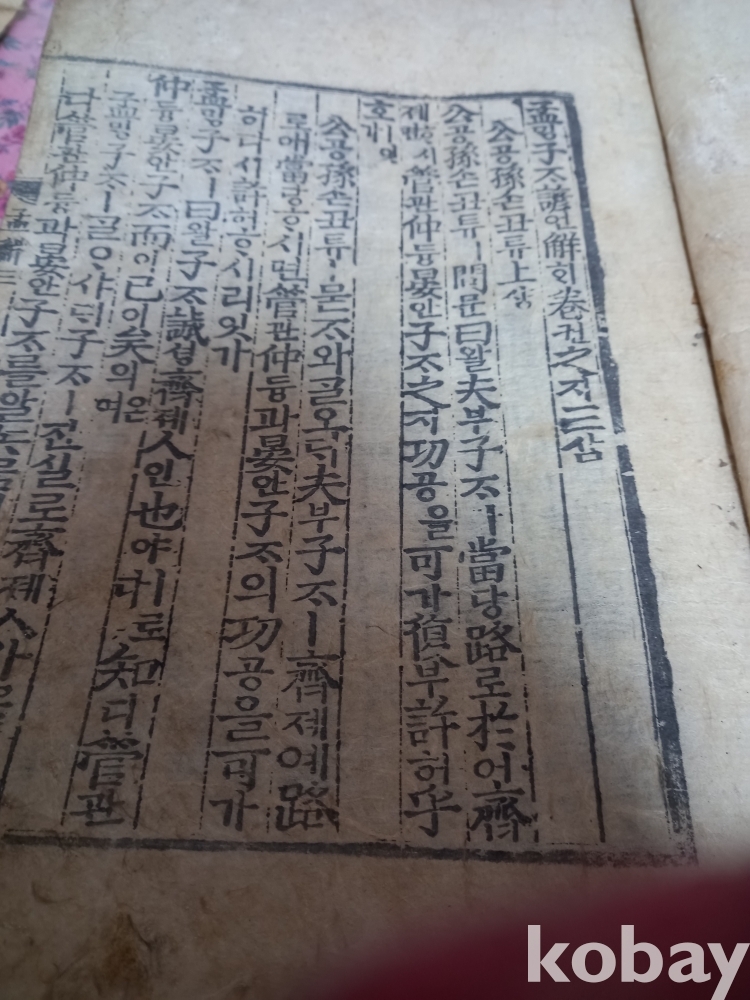 孟ᄆᆡᆼ子ᄌᆞ諺언解ᄒᆡ卷권之지三삼
公공孫손丑튜上샹
公공孫손丑튜ㅣ問문曰왈夫부子ᄌᆞㅣ當당路로於어齊
졔ᄒᆞ시면管관仲듕晏안子ᄌᆞ之지功공을可가復부許허乎
호ㅣ잇가
公공孫손丑튜ㅣ묻ᄌᆞ와ᄀᆞᆯ오ᄃᆡ夫부子ᄌᆞㅣ齊졔예路
로애當당ᄒᆞ시면管관仲듕과晏안子ᄌᆞ의功공을可가
히다시許허ᄒᆞ시리잇가
孟ᄆᆡᆼ子ᄌᆞㅣ曰왈子ᄌᆞ誠셩齊졔人인也야ㅣ로다知디管관
仲듕晏안子ᄌᆞ而이已이矣의은여
孟ᄆᆡᆼ子ᄌᆞㅣᄀᆞᆯᄋᆞ샤ᄃᆡ子ᄌᆞㅣ진실로齊졔人
다管관仲듕과晏안子ᄌᆞ를알
kobay